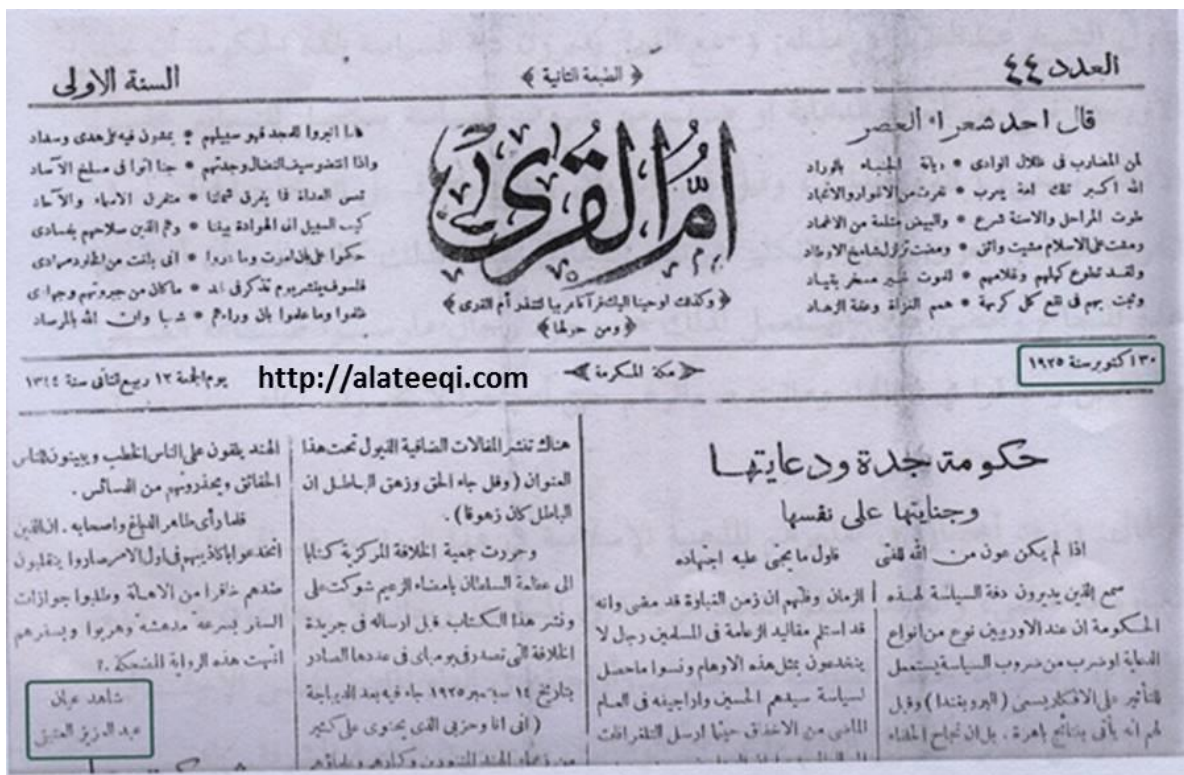 العدد ٤٤
﴿ الطبعة الثانية ﴾
السنة الاولى
قال احد شعراء العصر
لمن المضارب في ظلال الوادى * ريانة الجنبات بالوراد
الله اكبر تلك امة يعرب * نفرت من الاغوار والانجاد
طوت المراحل والاسنة شرع * والبيض متلعة من الاغماد
ومشت على الاسلام مشيت واثق * ومضت تزلزل شامخ الاوطاد
ولقد تطوع كهلهم وغلامهم * للموت غير مسخر بقياد
وثبت بهم في نقع كل كريهة * همم الغزاة وعفة الزهاد
أم القرى
﴿ وكذلك اوحينا اليك قرآنا عربيا لتنذر أم القرى ﴾
﴿ ومن حولها ﴾
هذا انبروا للمجد فهو سبيلهم * يمشون فيه على هدى وسداد
واذا انتضو سيف النضال وجدتهم * جنا اتوا فى مسلخ الآساد
نمسى العداة فا يفرق شملنا * متفرق الاسماء والآحاد
كيف السبيل الى الهوادة بيننا * وهم الذين صلاحهم بفسادى
فلسوف ينشر يوم تذكر فى غد * ما كان من جبروتهم وجهادى
غفوا وما علموا بان وراءهم * شعبا وان الله بالمرصاد
٣٠ اكتوبر سنة ١٩٢٥
﴿ مكة المكرمة ﴾
http://alateeqi.com
يوم الجمعة ١٢ ربيع الثانى سنة ١٣٤٤
حكومة جدة ودعايتها
وجنايتها على نفسها
اذا لم يكن عون من الله للفتى فاول ما يجنى عليه اجتهاده
سمع الذين يديرون دفة السياسة لهذه
الحكومة ان عند الاوربيين نوع من انواع
الدعاية او ضرب من ضروب السياسة يستعمل
للتأثير على الافكار يسمى (البروبغندا) وقيل
لهم انه يأتى بنتائج باهرة. بل ان نجاح الحلفاء
الزمان وظنهم ان زمن الغباوة قد مضى وانه
قد استلم مقاليد الزعامة فى المسلمين رجل لا
ينخدعون بمثل هذه الاوهام ونسوا ما حصل
لسياسة سيدهم الحسين واراجيفه فى العام
الماضى من الاخفاق حينما ارسل التلغرافات
هناك تنشر المقالات الضافية الذيول تحت هذا
العنوان (وقل جاء الحق وزهق الباطل ان
الباطل كان زهوقا).
وحررت جمعية الخلافة المركزية كتابا
الى عظمة السلطان بامضاء الزعيم شوكت على
ونشر هذا الكتاب قبل ارساله فى جريدة
الخلافة التى تصدر فى بومباى فى عددها الصادر
بتاريخ ١٤ سبتمبر ١٩٢٥ جاء فيه بعد الديباجة
(انى انا وحزبى الذى يحتوى على كثير
من زعماء الهند المتنورين وكبارهم وعلماؤهم
الهند يلقون على الناس الخطب ويبينون للناس
الحقائق ويحذرونهم من الدسائس.
فلما رأى طاهر الدباغ واصحابه. ان الذين
انخدعوا باكاذيبهم فى اول الامر صاروا ينقلبون
ضدهم خافوا من الاهانة وطلبوا جوازات
السفر بسرعة مدهشة وهربوا وبسفرهم
انتهت هذه الرواية المضحكة.؟
شاهد عيان
عبد العزيز العتيقى